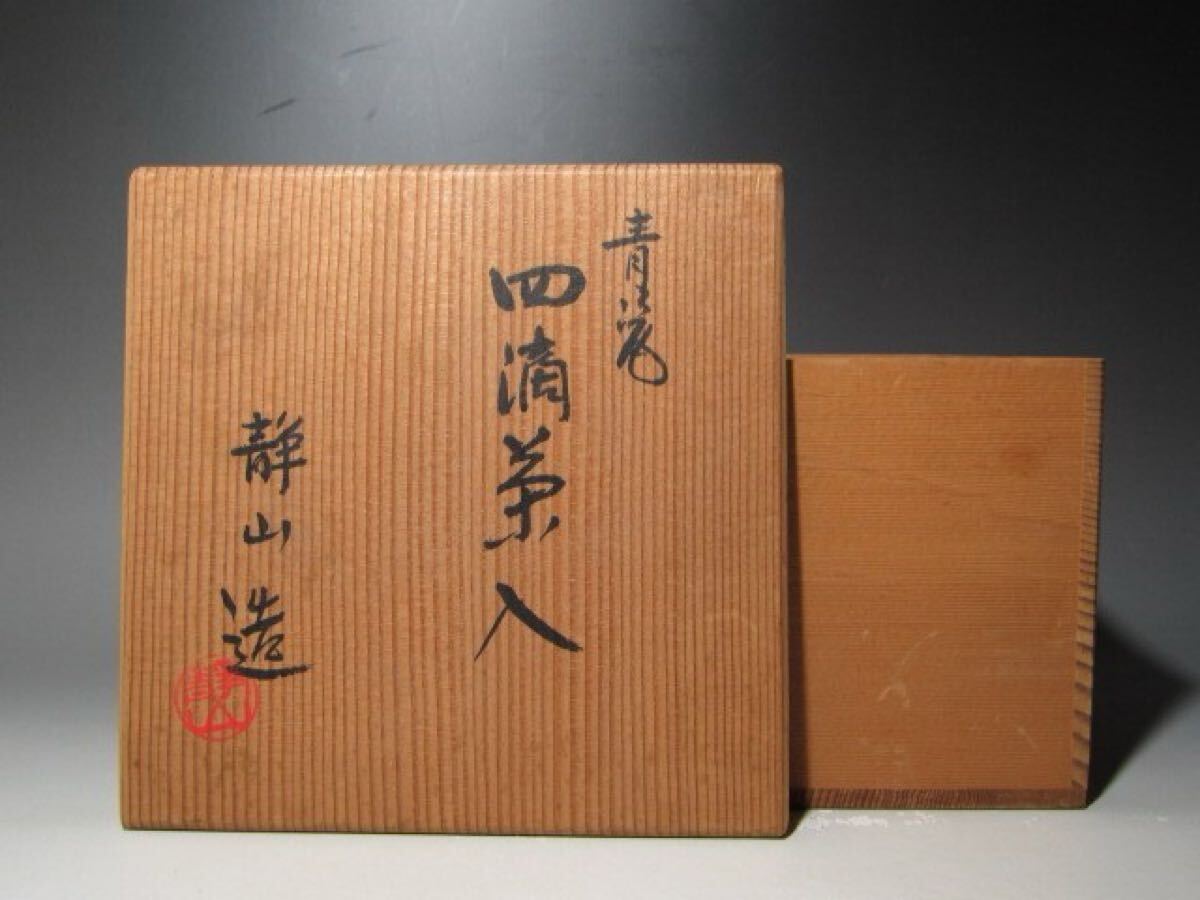 青瓷
四滴茶入
静山造
静山